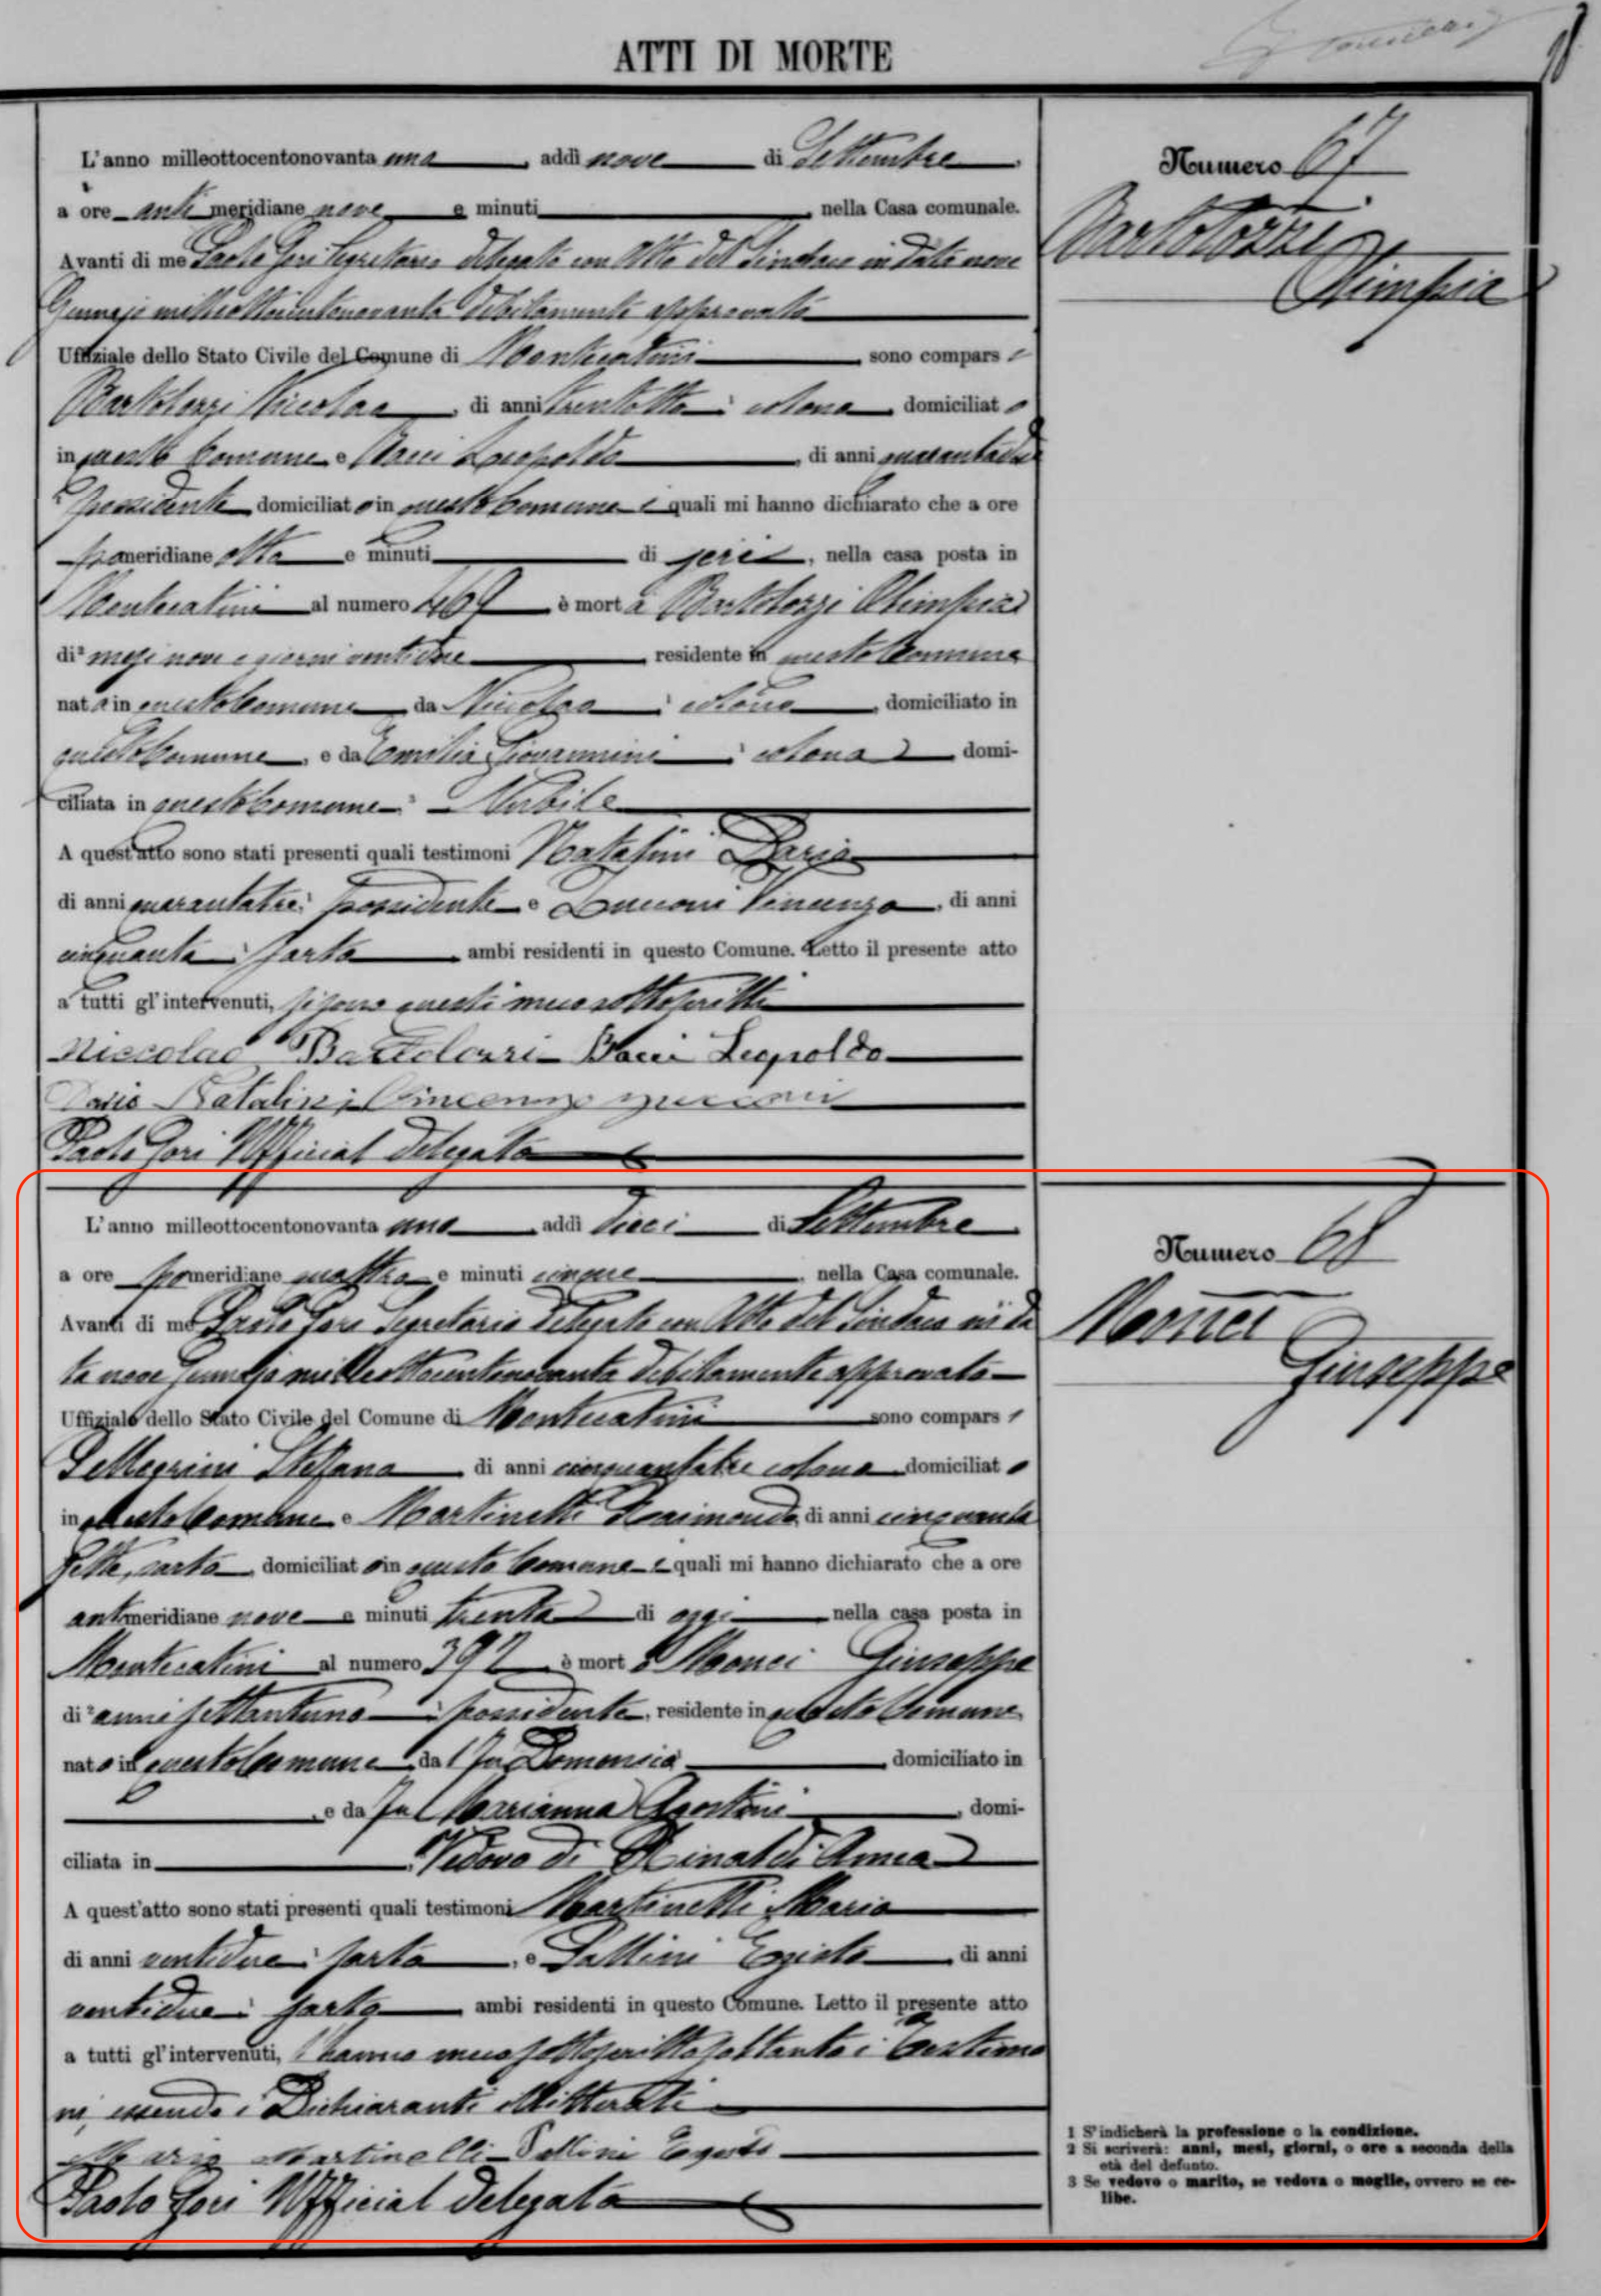 ATTI DI MORTE
L'anno milleottocentonovanta uno, addì nove di Settembre,
a ore anti meridiane nove e minuti , nella Casa comunale.
Avanti di me Paolo Gori Segretario delegato con Atto del Sindaco in data nove
Gennajo milleottocentonovanta debitamente approvato
Uffiziale dello Stato Civile del Comune di Montecatini sono compars i
Bartolozzi Niccolao, di anni trentotto colono domiciliat o
in questo Comune e Bacci Leopoldo, di anni quarantadue
possidente domiciliat o in questo Comune i quali mi hanno dichiarato che a ore
pomeridiane otto e minuti di jeri, nella casa posta in
Montecatini al numero 469 è mort a Bartolozzi Olimpia
di mesi nove e giorni ventidue, residente in questo Comune
nat a in questo Comune da Niccolao colono, domiciliato in
questo Comune, e da Emilia Giovannini colona domi-
ciliata in questo Comune Nubile
A quest'atto sono stati presenti quali testimoni Natalini Dario
di anni quarantatre possidente e Zucconi Vincenzo, di anni
cinquanta sarto ambi residenti in questo Comune. Letto il presente atto
a tutti gl'intervenuti, si sono questi meco sottoscritti
Niccolao Bartolozzi Bacci Leopoldo
Dario Natalini Vincenzo Zucconi
Paolo Gori Uffficial delegato
Numero 67
Bartolozzi
Olimpia
L'anno milleottocentonovanta uno, addì dieci di Settembre
a ore pomeridiane quattro e minuti cinque, nella Casa comunale.
Avanti di me Paolo Gori Segretario delegato con Atto del Sindaco in da
ta nove Gennajo milleottocentonovanta debitamente approvato
Uffiziale dello Stato Civile del Comune di Montecatini sono compars i
Pellegrini Stefano di anni cinquantatre colono domiciliat o
in questo Comune e Martinelli Raimondo, di anni cinquanta
sette, sarto, domiciliat o in questo Comune i quali mi hanno dichiarato che a ore
antimeridiane nove e minuti trenta di oggi nella casa posta in
Montecatini al numero 392 è mort o Monci Giuseppe
di anni settantuno possidente, residente in questo Comune,
nat o in questo Comune da fu Domenico, domiciliato in
, e da fu Marianna Agostini, domi-
ciliata in Vedovo di Rinaldi Anna
A quest'atto sono stati presenti quali testimoni Martinelli Mario
di anni ventidue sarto, e Pallini Egisto di anni
ventidue sarto ambi residenti in questo Comune. Letto il presente atto
a tutti gl'intervenuti, hanno meco sottoscritto soltanto i Testimo
ni, essendo i Dichiaranti illitterati
Mario Martinelli Pallini Egisto
Paolo Gori Uffficial delegato
Numero 68
Monci
Giuseppe
1 S'indicherà la professione o la condizione.
2 Si scriverà: anni, mesi, giorni, o ore a seconda della
età del defunto.
3 Se vedovo o marito, se vedova o moglie, ovvero se ce-
libe.